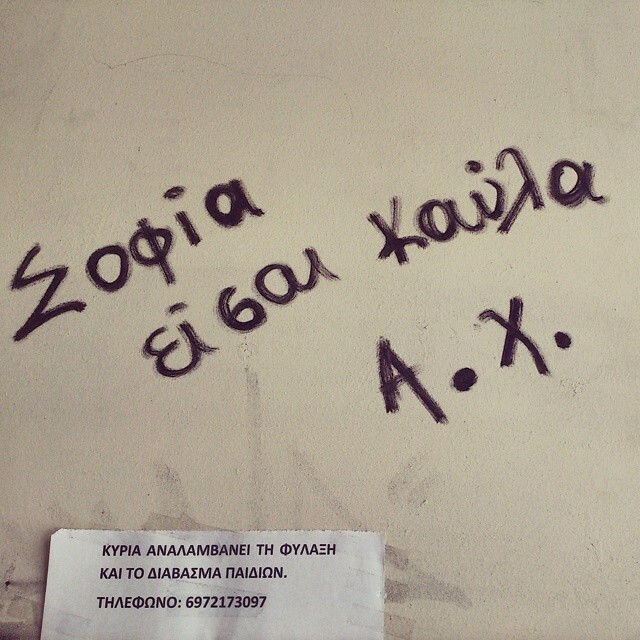 Σοφία
είσαι καύλα
Α.Χ.
ΚΥΡΙΑ ΑΝΑΛΑΜΒΑΝΕΙ ΤΗ ΦΥΛΑΞΗ
ΚΑΙ ΤΟ ΔΙΑΒΑΣΜΑ ΠΑΙΔΙΩΝ.
ΤΗΛΕΦΩΝΟ: 6972173097